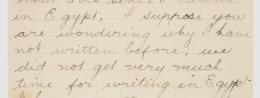 in Egypt; I suppose you
are wondering why I have
not written before, we
did not get very much
time for writing in Egypt